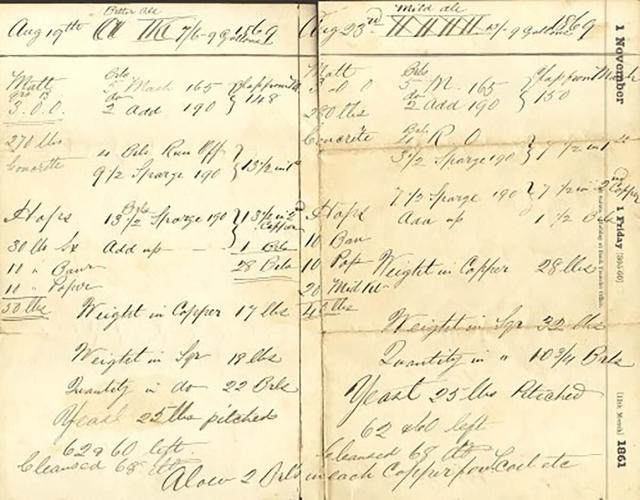 Bitter Ale
Aug 19th XX IIII 7/6 - 9 Gallons 1869
Malt Brls
Qrs B 5 Mash 165 } Tap from Mash
3.0.0. do 2 Add 190 } 148
270 lbs
Concrete 4 Brls Run Off }
9 1/2 Sparge 190 } 13 1/2 in 1st
Hops 13 1/2 Brls Sparge 190 } 13 1/2 in 2nd Copper
30 lb Sx Add up 1 Brls
10 " Bavr 28 Brls
10 "
50 lbs Weight in Copper 17 lbs
Weight in Sqr 18 lbs
Quantity in do 22 Brls
Yeast 25 lbs pitched
62 & 60 left.
Cleansed 68
Mild Ale
Aug 23rd XXXX 9 Gallons 1869
Malt Brls
5 M. 165 } Tap from Mash
do 2 Add 190 } 150
280 lbs
Concrete Brls 4 R O }
3 1/2 Sparge 190 } 7 1/2 in 1st
7 1/2 Sparge 190 } 7 1/2 in 2nd Copper
Hops Add up 1 1/2 Brls
10 Bav
10 Weight in Copper 28 lbs
20
lbs Weight in Sqr 32 lbs
Quantity in " 10 3/4 Brls
Yeast 25 lbs Pitched
62 & 60 left
Cleansed 68
Alow 2 Brls in each Copper for Coil etc
1 November
1 Friday [305-60]
[11th Month] 1861